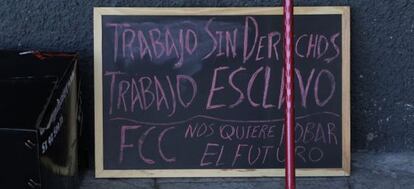 TRABAJO SIN DERECHOS
TRABAJO ESCLAVO
FCC NOS QUIERE ROBAR
EL FUTURO